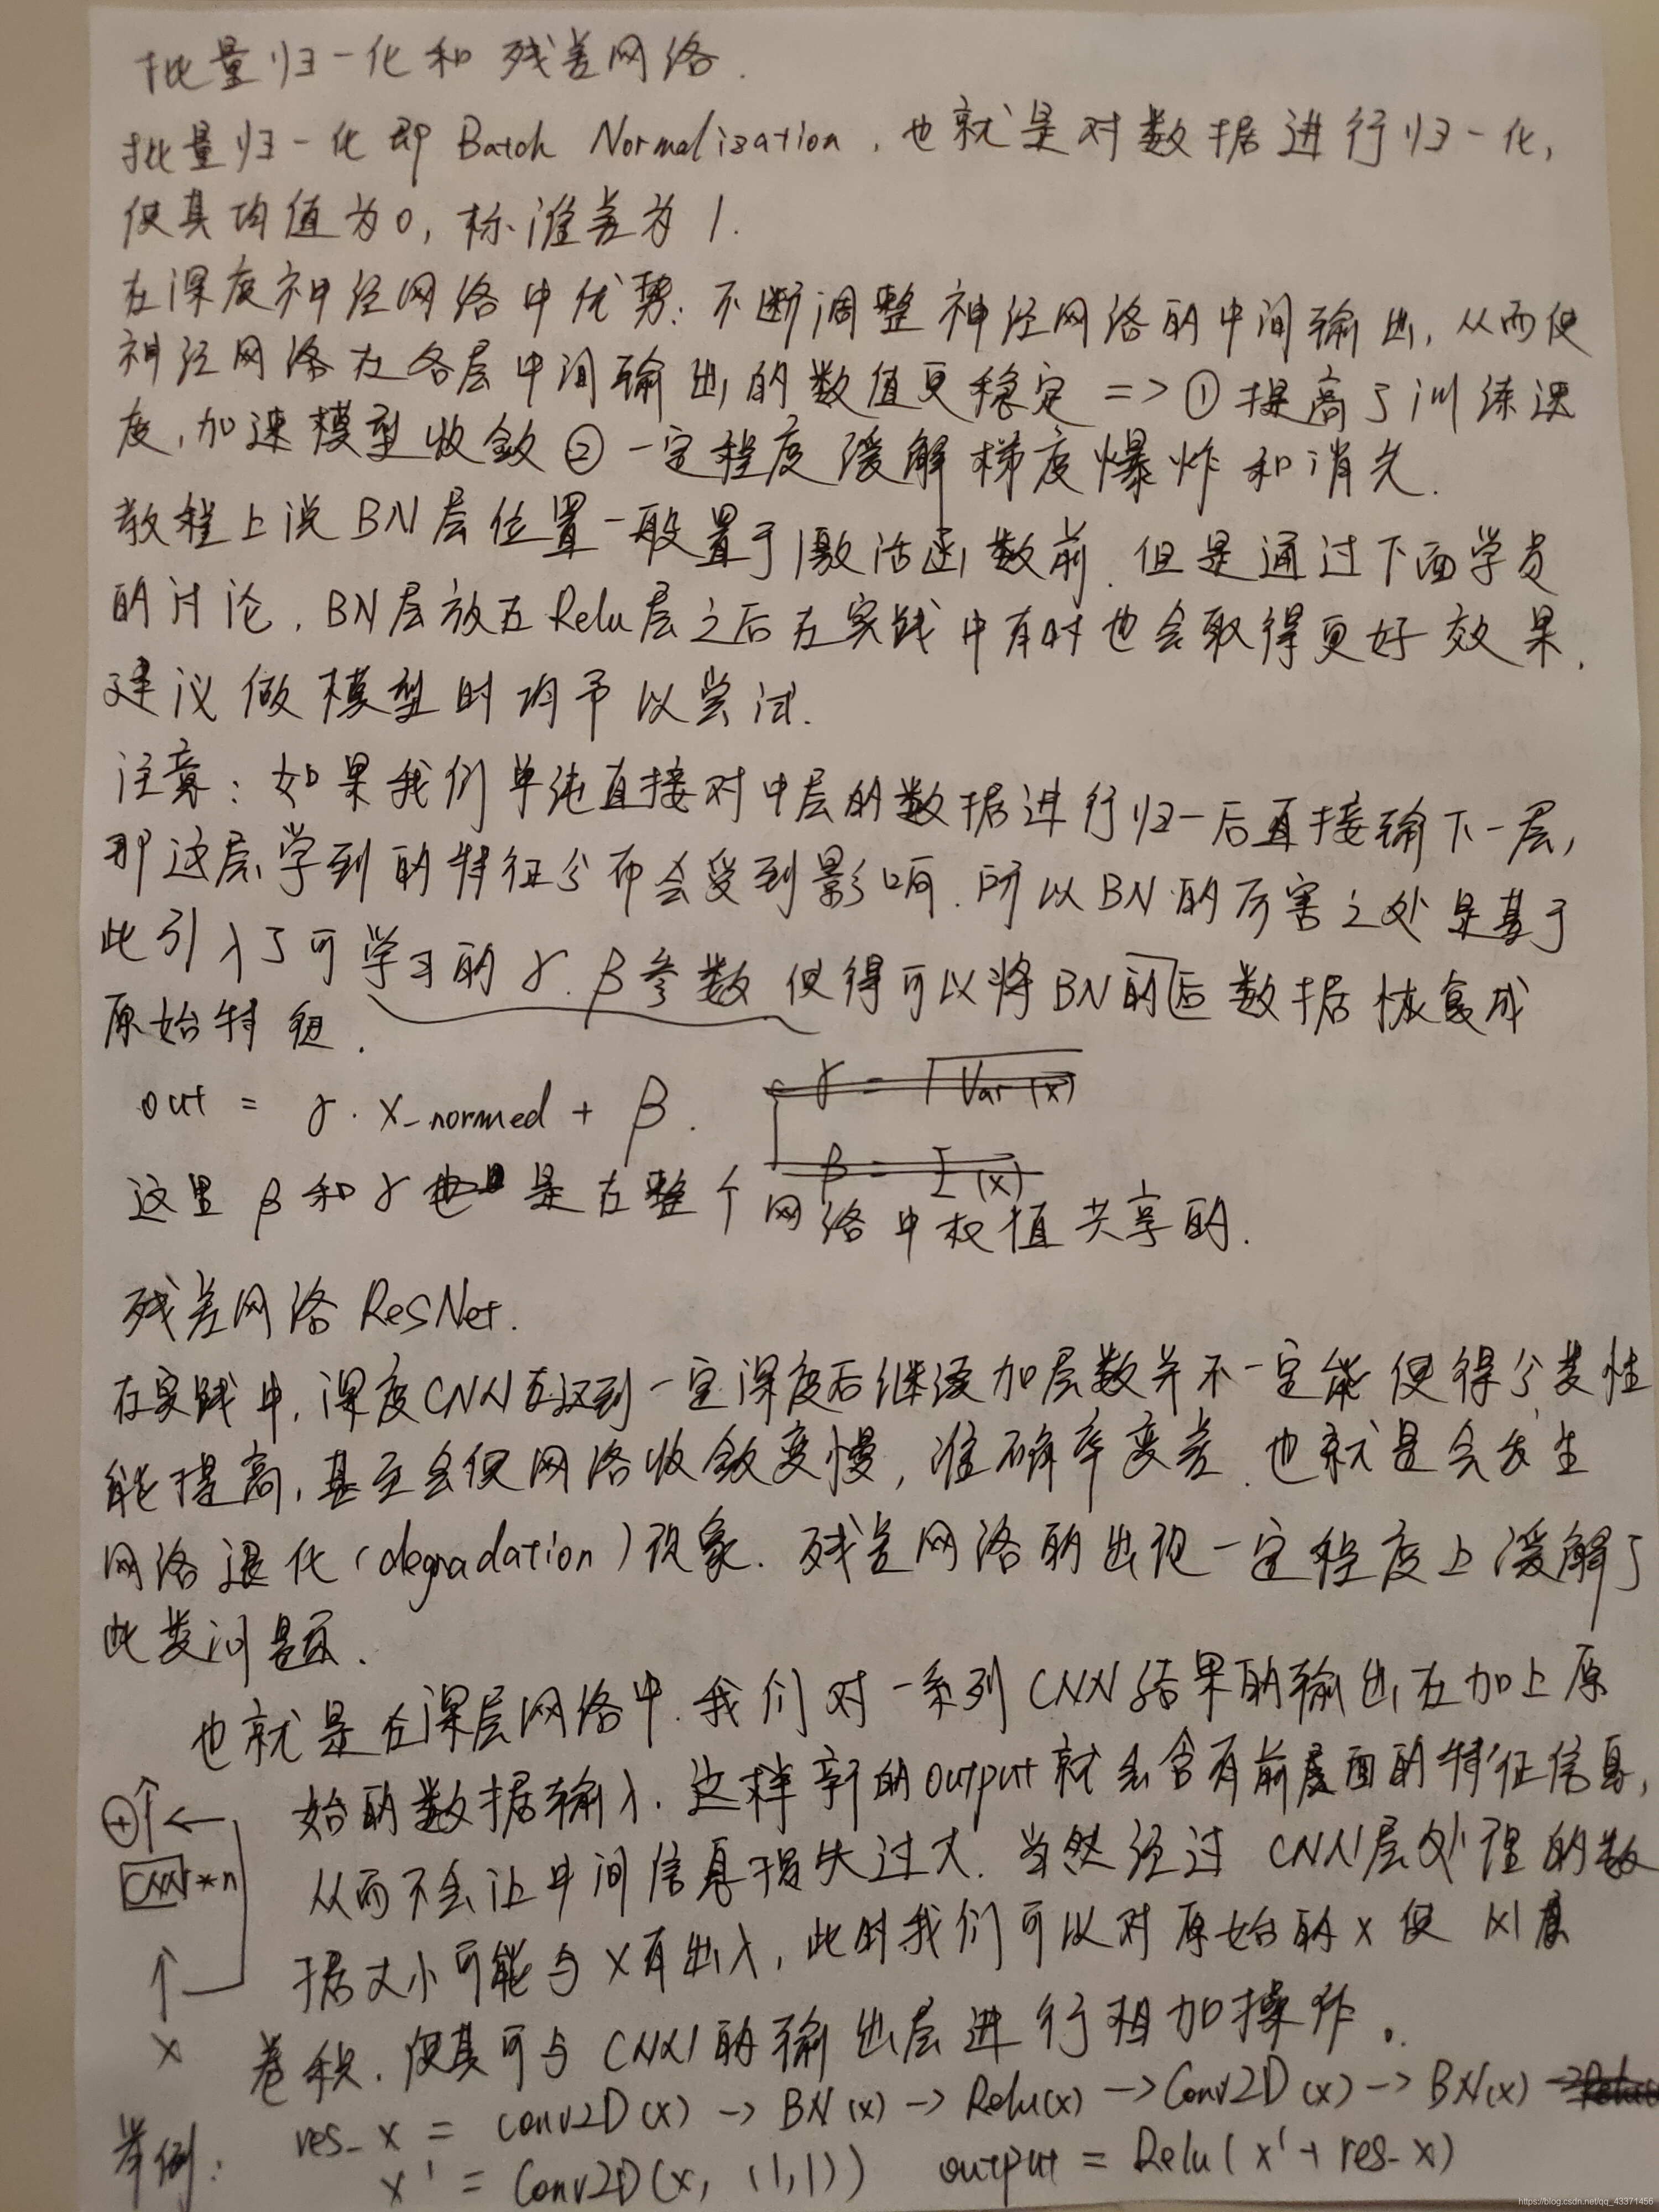 批量归一化和残差网络.
批量归一化即 Batch Normalization, 也就是对数据进行归一化,
使其均值为0, 标准差为1.
在深度神经网络中优势: 不断调整神经网络的中间输出, 从而使
神经网络在各层中间输出的数值更稳定 => ① 提高了训练速
度, 加速模型收敛 ② 一定程度缓解梯度爆炸和消失.
教程上说BN层位置一般置于激活函数前. 但是通过下面学员
的讨论, BN层放在Relu层之后在实践中有时也会取得更好效果.
建议做模型时均予以尝试.
注意: 如果我们单纯直接对中层的数据进行归一后直接输下一层,
那这层学到的特征分布会受到影响. 所以BN的厉害之处是基于
此引入了可学习的γ.β参数 使得可以将BN前后数据恢复成
原始特征.
out = γ · x_normed + β.
γ = √Var(x)
β = E(x)
这里β和γ也是在整个网络中权值共享的.
残差网络 ResNet.
在实践中, 深度CNN在达到一定深度后继续加层数并不一定能使得分类性
能提高, 甚至会使网络收敛变慢, 准确率变差. 也就是会发生
网络退化(degradation)现象. 残差网络的出现一定程度上缓解了
此类问题.
也就是在深层网络中. 我们对一系列CNN结果的输出在加上原
始的数据输入. 这样新的output就会含有前层面的特征信息,
从而不会让中间信息损失过大. 当然经过CNN层处理的数
据大小可能与x有出入, 此时我们可以对原始的x使1x1
卷积. 使其可与CNN的输出层进行相加操作.
⊕
CNN*n
x
举例: res_x = Conv2D(x) -> BN(x) -> Relu(x) -> Conv2D(x) -> BN(x)
x' = Conv2D(x, (1,1)) output = Relu(x' + res_x)
https://blog.csdn.net/qq_43371456